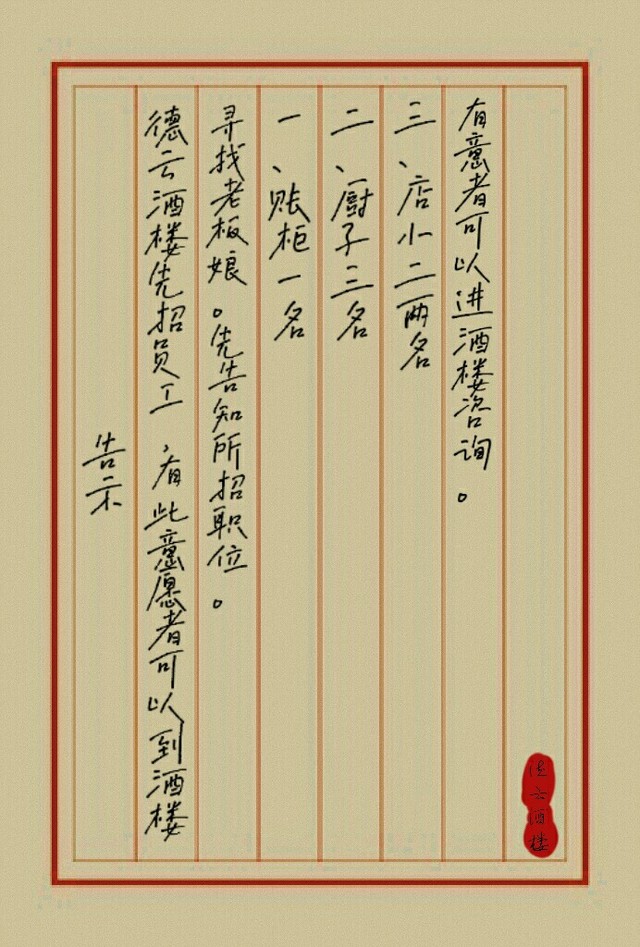 告示
德云酒楼先招员工，有此意愿者可以到酒楼
寻找老板娘。先告知所招职位。
一、账柜一名
二、厨子三名
三、店小二两名
有意者可以进酒楼咨询。
德云酒楼